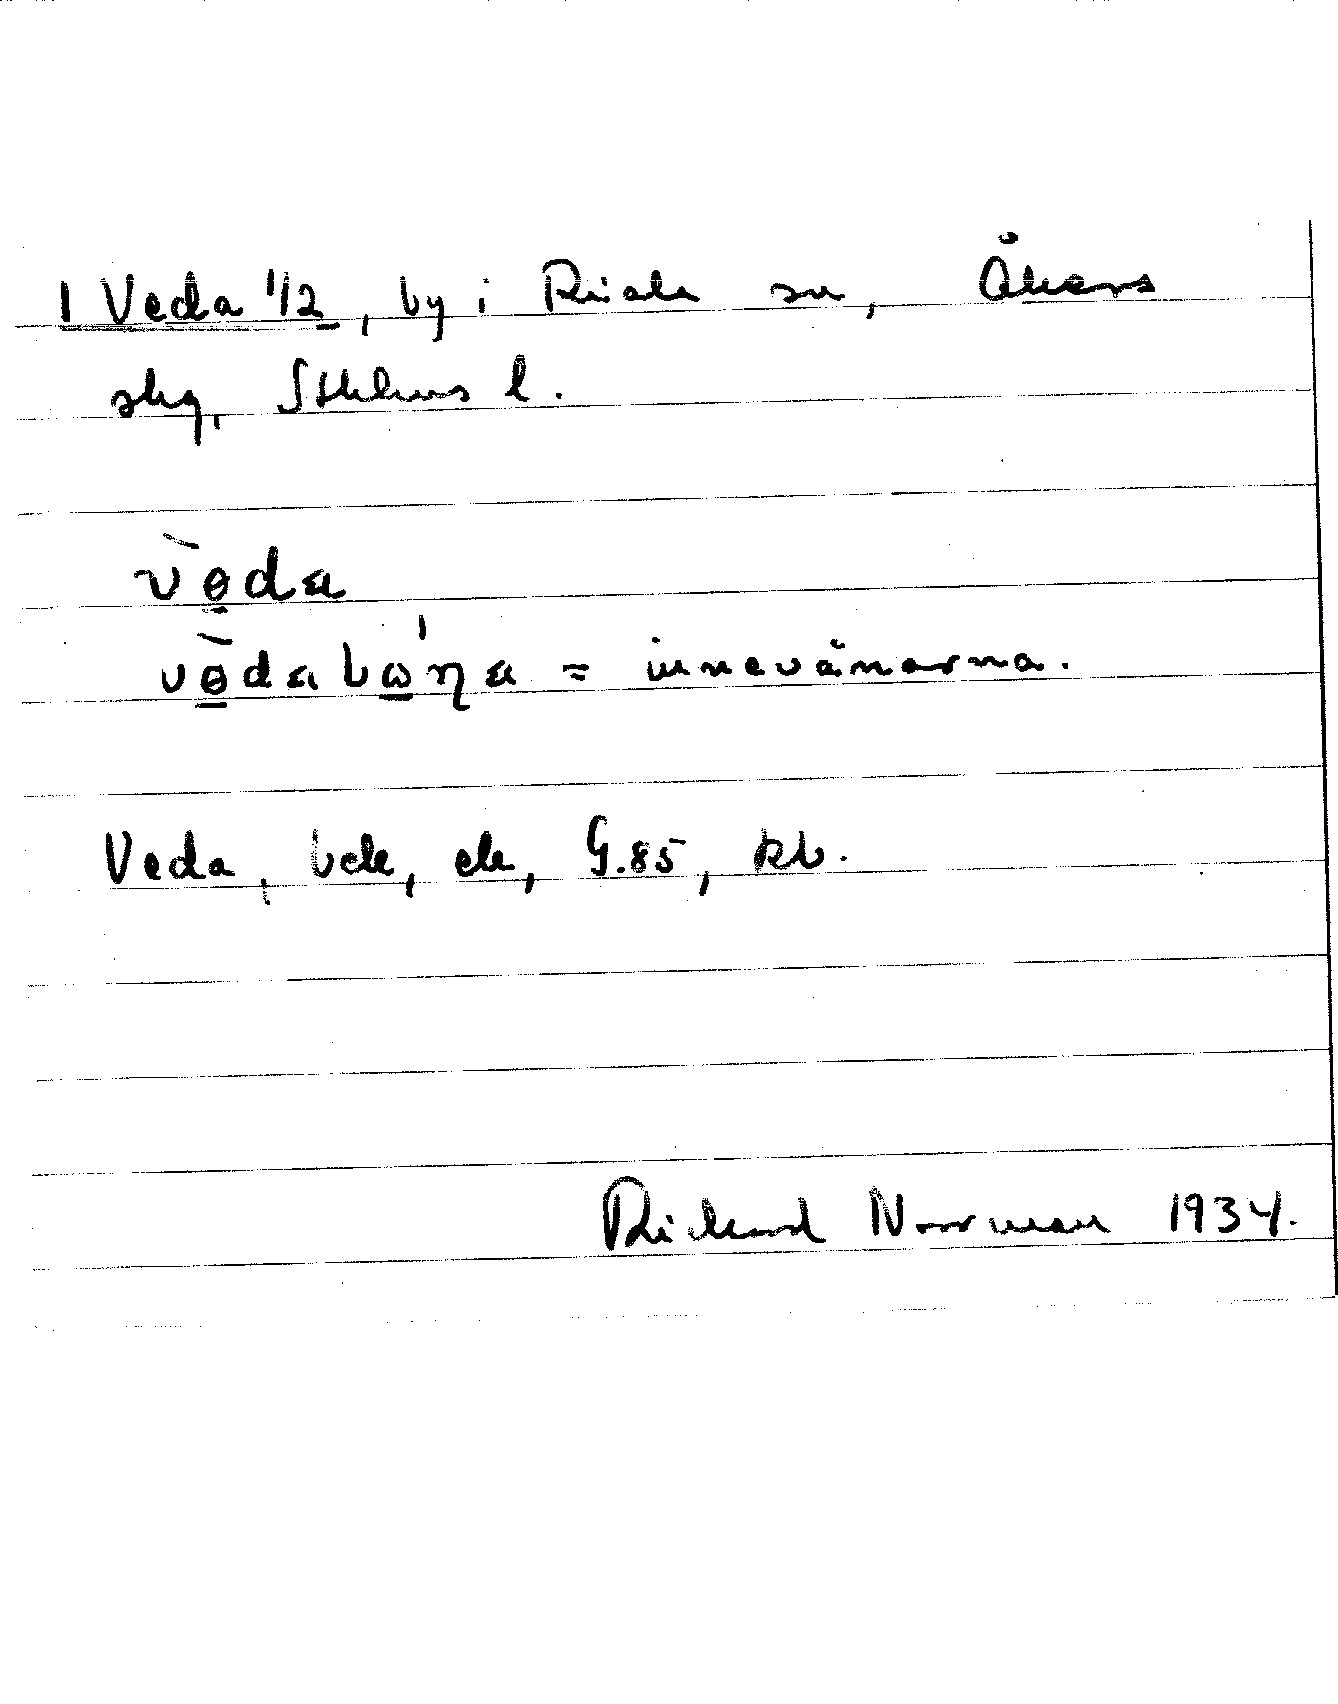 1 Veda 1/2, by i Riala sn, Åkers
skg, Sthlms l.
vèda
vèdabω'ηa = innevånarna.
Veda, bde, ek, G.85, kb.
Rickard Norman 1934.